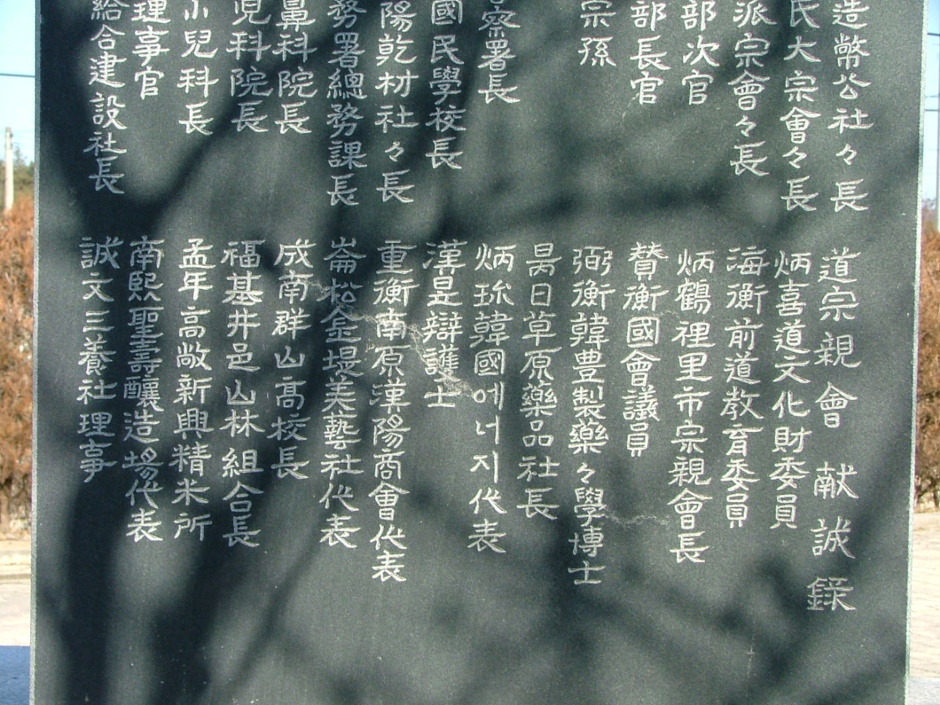 造幣公社々長
民大宗會々長
派宗會々長
部次官
部長官
宗孫
察署長
國民學校長
陽乾材社々長
務署總務課長
鼻科院長
兒科院長
小兒科長
理事官
給合建設社長
道宗親會 献誠錄
炳喜道文化財委員
海衡前道教育委員
炳鶴裡里市宗親會長
贊衡國會議員
弼衡韓豊製藥々學博士
昺日草原藥品社長
炳珎韓國에너지代表
漢昱辯護士
重衡南原漢陽商會代表
崙松金堤美藝社代表
成南群山高校長
福基井邑山林組合長
孟年高敞新興精米所
南熙聖壽釀造場代表
誠文三養社理事